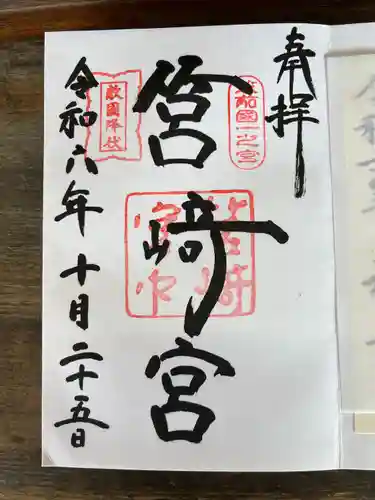 奉拝
筑前國一之宮
筥崎宮
敵國降伏
令和六年十月二十五日